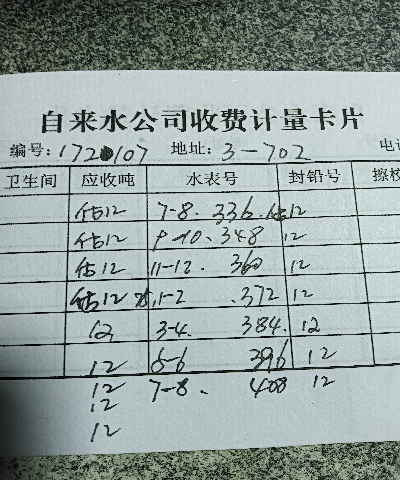 自来水公司收费计量卡片
编号:1720107 地址:3-702 电话
卫生间 应收吨 水表号 封铅号 擦校
估12 7-8. 336. 估12
估12 9-10. 348 12
估12 11-12. 360 12
估12 1-2 .372 12
12 3-4. 384. 12
12 5-6 396 12
12 7-8. 408 12
12
12